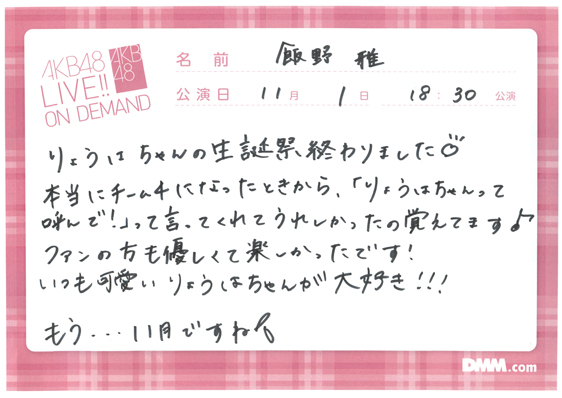 AKB48
LIVE!!
ON DEMAND
AKB
48
名前 飯野 雅
公演日 11月 1日 18:30 公演
りょうはちゃんの生誕祭終わりました♡
本当にチーム4になったときから、「りょうはちゃんって
呼んで!」って言ってくれてうれしかったの覚えてます♪
ファンの方も優しくて楽しかったです!
いつも可愛いりょうはちゃんが大好き!!!
もう...11月ですね
DMM.com